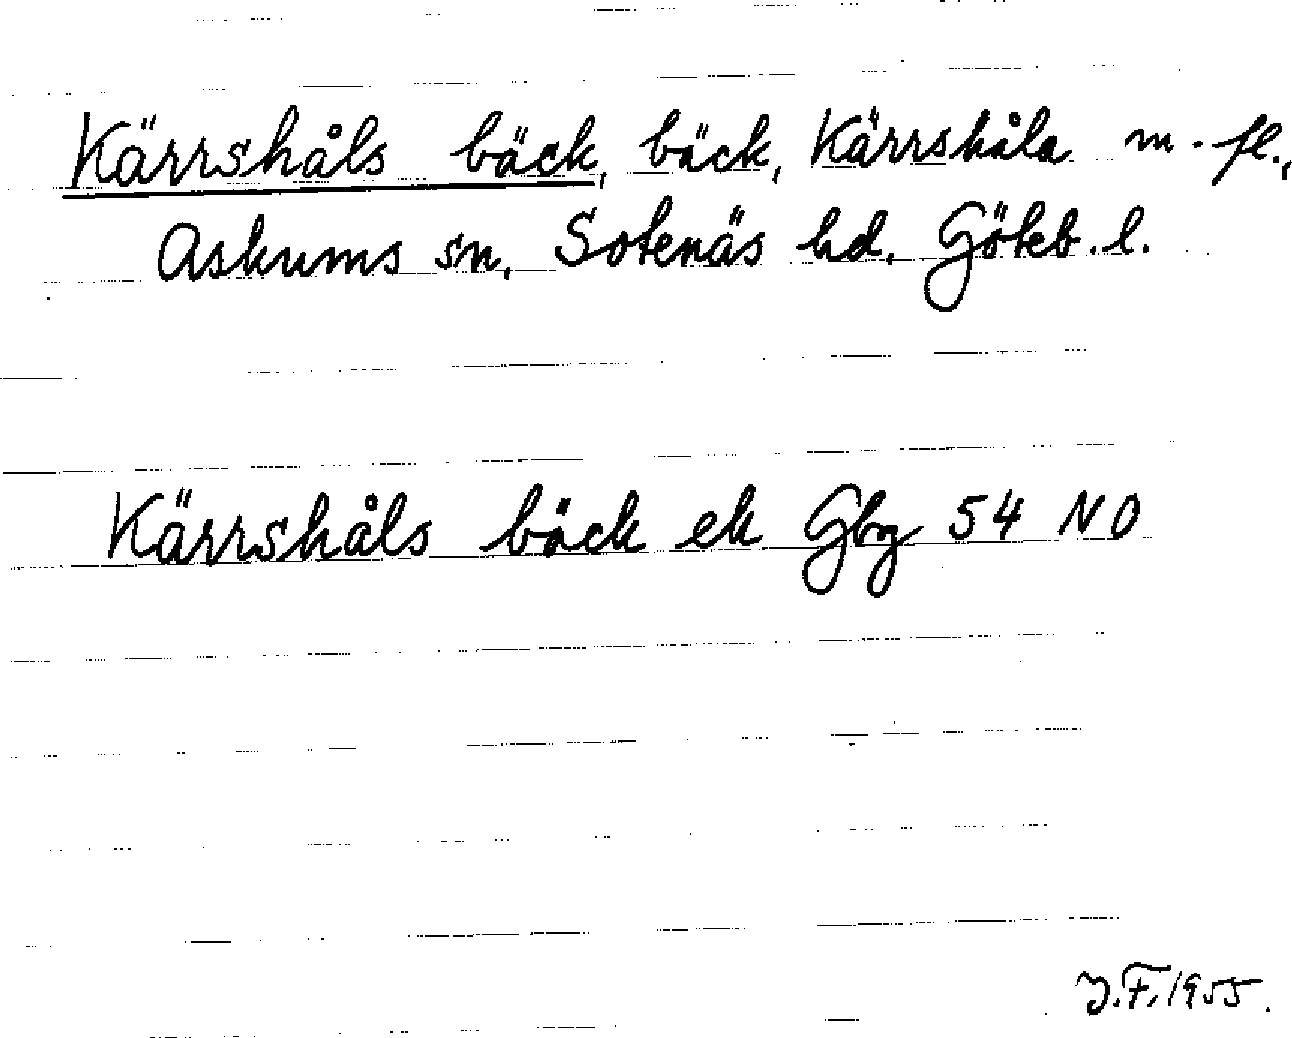 Kärrshåls bäck, bäck, Kärrshåla m. fl.,
Askums sn, Sotenäs hd. Göteb. l.
Kärrshåls bäck ek Gbg 54 NO
J.F. 1955.